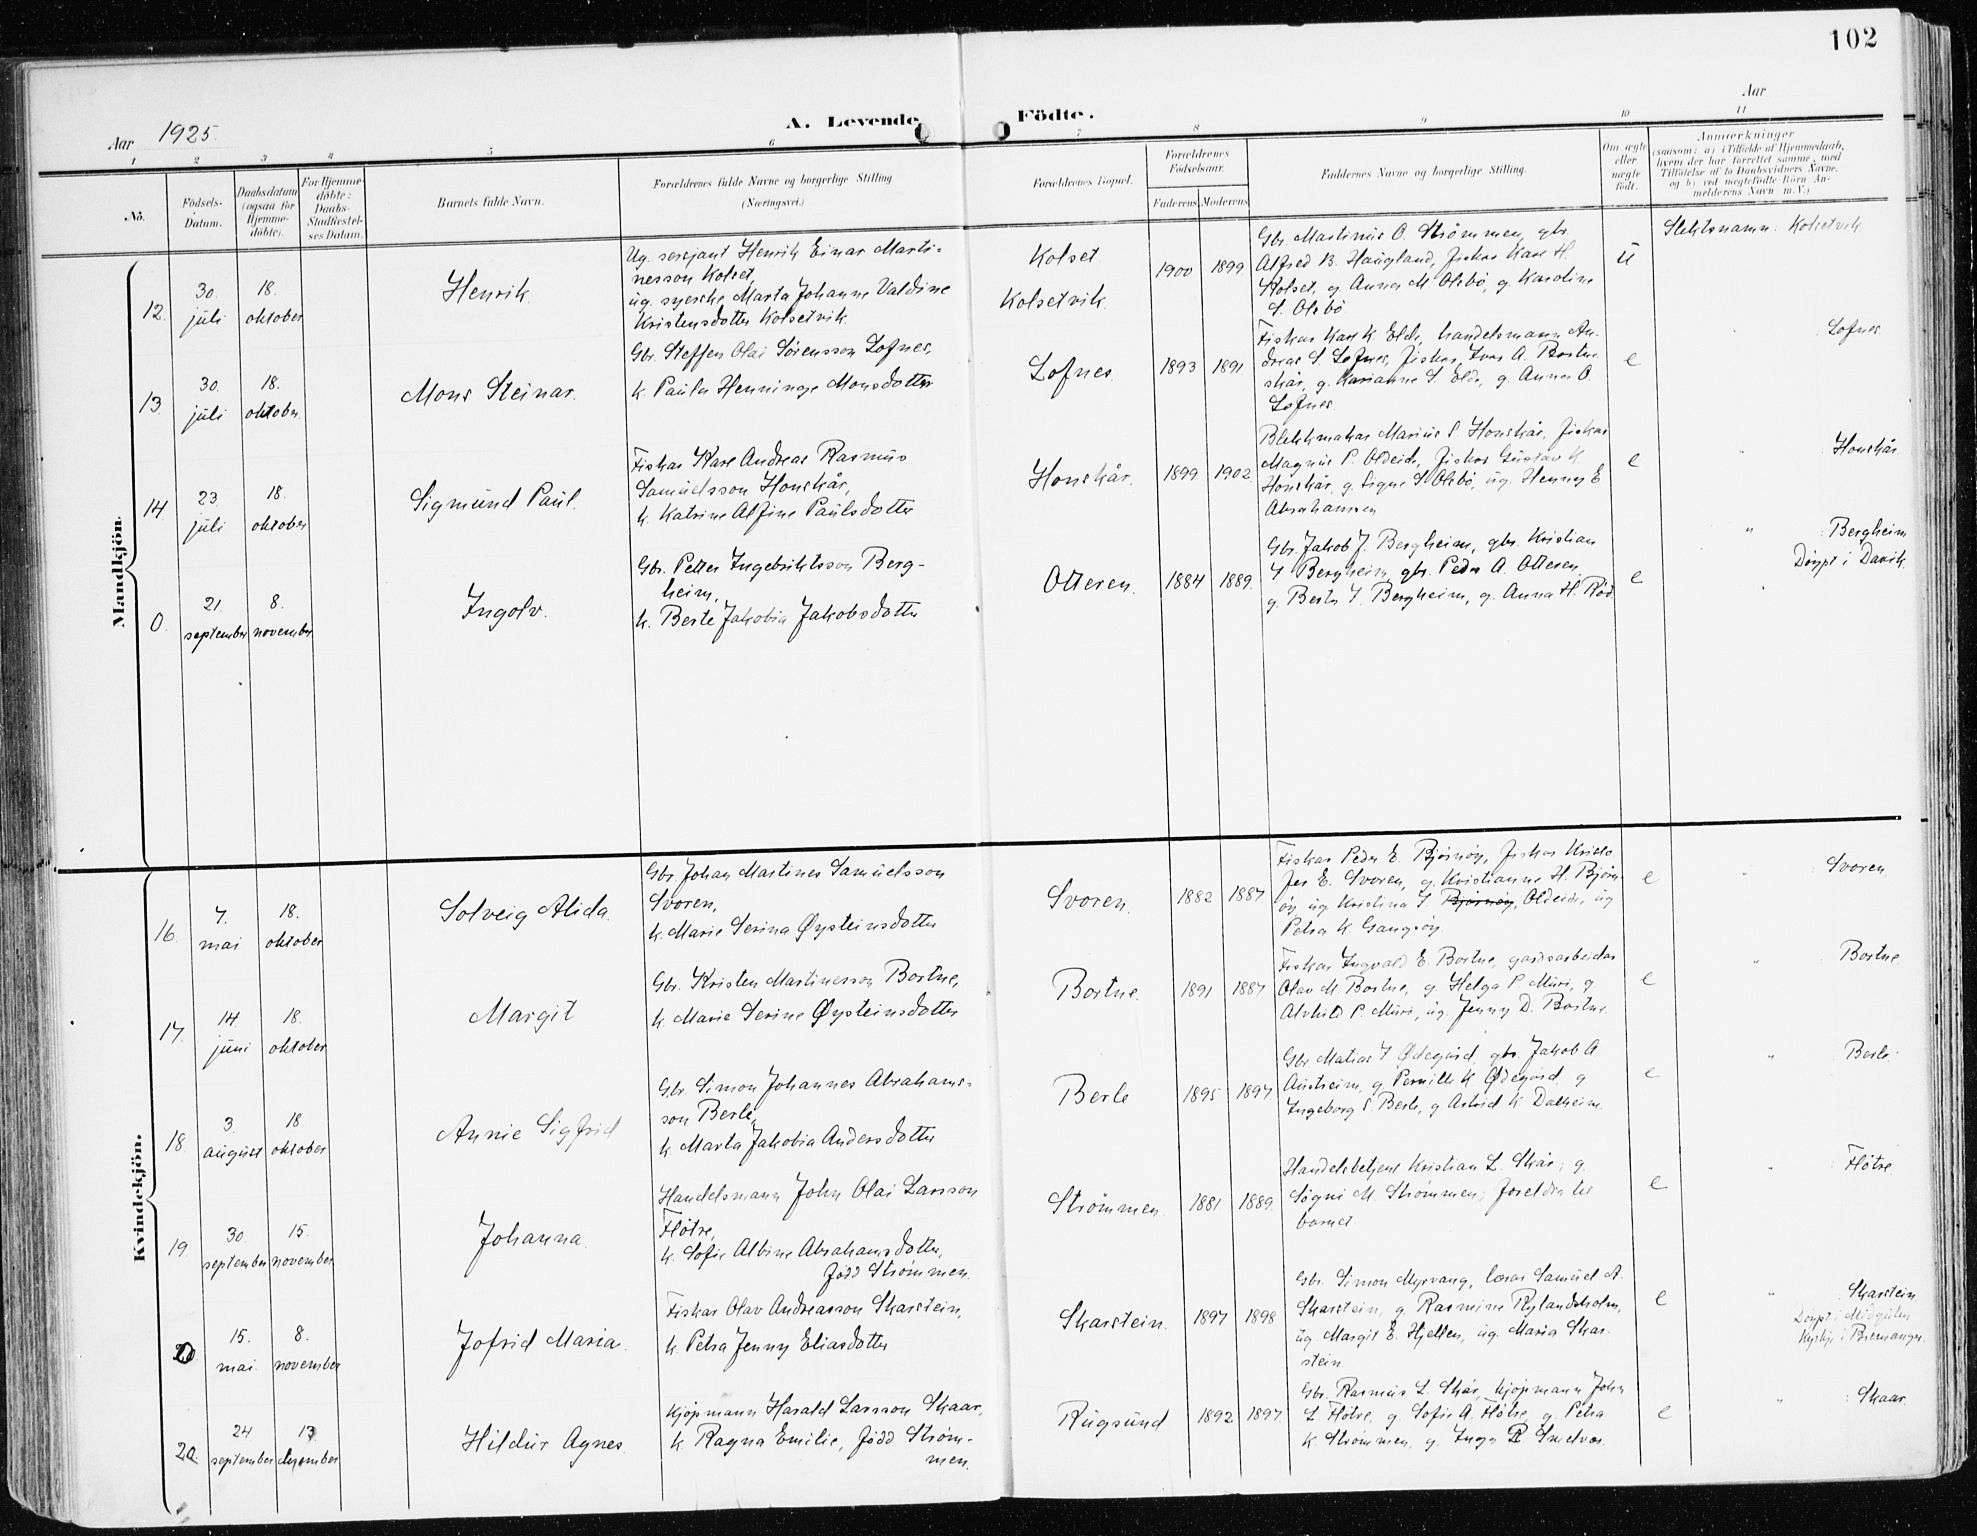 102
Aar 1925.
A. Levende Födte.
Aar
1 2 3 4 5 6 7 8 9 10 11
No.
Födsels-Datum.
Daabsdatum (ogsaa for Hjemmedöbte).
For Hjemmedöbte: Daabs-Stadfæstelses Datum.
Barnets fulde Navn.
Forældrenes fulde Navne og borgerlige Stilling (Næringsvei.)
Forældrenes Bopæl.
Forældrenes Födselsaar.
Faderens Moderens
Faddernes Navne og borgerlige Stilling.
Om ægte eller uægte födt.
Anmærkninger
(saasom: a) i Tilfælde af Hjemmedaab, hvem der har forrettet samme, med Tilföielse af to Daabsvidners Navne, og b) ved uægtefödte Börn Anmelderens Navn m. V.)
Mandkjön.
12.
30. juli
18. oktober
Henrik.
Ug. sersjant Henrik Einar Marti-
nesson Kolset,
ug. syerske Marta Johanne Valdine
Kristensdotter Kolsetvik.
Kolset
Kolsetvik.
1900 1899
Gbr. Martinus O. Strømmen, gbr.
Alfred B. Haugland, fiskar Kare H.
Kolset, g. Anna M. Oldebø, g. Karoline
S. Olsbø.
u
Slektsnamn: Kolsetvik
13.
30. juli
18. oktober
Mons Steinar.
Gbr. Steffen Olai Sørensson Lofnes,
k. Paula Henninge Monsdotter
Lofnes.
1893 1891
Fiskar Karl K. Elde, handelsmann An-
dreas S. Lofnes, fiskar Ivar A. Bortne
skår, g. Karianne S. Elde, g. Anna O.
Lofnes.
e
" : Lofnes
14
23. juli
18. oktober
Sigmund Paul.
Fiskar Kare Andreas Rasmus
Samuelsson Honskår,
k. Katrine Alfine Paulsdotter
Honskår.
1899 1902
Blekkmakar Marius S. Honskår, fiskar
Magnus P. Oldeide, fiskar Gustav K
Honskår, g. Signe S Olsbø, ug. Henny E
Abrahamsen
e
" : Honskår
0.
21. september
8. november
Ingolv.
Gbr. Petter Ingebriktsson Berg-
heim,
k. Berte Jakobia Jakobsdotter
Otteren.
1884 1889.
Gbr. Jakob J. Bergheim, gbr. Kristian
I Bergheim, gbr. Peder A. Otteren,
g. Berta I. Bergheim, g. Anna H. Rød.
e
" : Bergheim
Døypt i Davik.
Kvindekjön.
16.
7. mai
18. oktober
Solveig Alida.
Gbr. Johan Martines Samuelsson
Svoren,
k. Marie Serina Øysteinsdotter
Svoren.
1882 1887
Fiskar Peder E. Bjørnøy, fiskar Kristo
fer E. Svoren, g. Kristianne H. Bjørn-
øy, ug. Kristina I. Bjørnøy, Oldeide, ug
Petra K Gangsøy.
e
" : Svoren
17.
14. juni
18. oktober
Margit
Gbr. Kristen Martinesson Bortne,
k. Marie Serine Øysteinsdotter
Bortne.
1891 1887
Fiskar Ingvald E. Bortne, gardsarbeidar
Olav M. Bortne, g. Helga P. Muri, g.
Alvhild P. Muri, ug. Jenny D. Bortne.
e
" : Bortne.
18.
3. august
18 oktober
Annie Sigfrid
Gbr. Simon Johannes Abrahams-
son Berle,
k. Marta Jakobia Andersdotter
Berle
1895 1897
Gbr. Matias I Ødegård, gbr. Jakob A
Austreim, g. Pernille K. Ødegård, g.
Ingeborg S. Berle, g. Astrid K. Dalheim.
e
" : Berle.
19.
30. september
15. november
Johanna
Handelsmann John Olai Larsson
Fløtre,
k. Sofie Albine Abrahamsdotter,
fødd Strømmen.
Strømmen.
1881. 1889.
Handelsbetjent Kristian L. Skår; g.
Søgni M. Strømmen; foreldra til
barnet
e
" : Fløtre.
20.
15. mai.
8. november
Jofrid Maria.
Fiskar Olav Andreasson Skarstein,
k. Petra Jenny Eliasdotter
Skarstein.
1897 1898
Gbr. Simon Myrvang, lærar Samuel A.
Skarstein, g. Rasmine Rylandsholm,
ug. Margit E. Hjellen, ug. Maria Skar-
stein.
e
" : Skarstein
Døypt i Midgulen
Kyrkje i Bremanger.
20.
24 september
13. desember
Hildur Agnes.
Kjøpmann Harald Larsson Skaar,
k. Ragna Emilie, fødd Strøm-
men.
Rugsund
1892 1897.
Gbr. Rasmus L. Skår, kjøpmann John
L Fløtre, g. Sofie A. Fløtre, g. Petra
K. Strømmen, g. Inga R Smelvær.
e
" : Skaar.